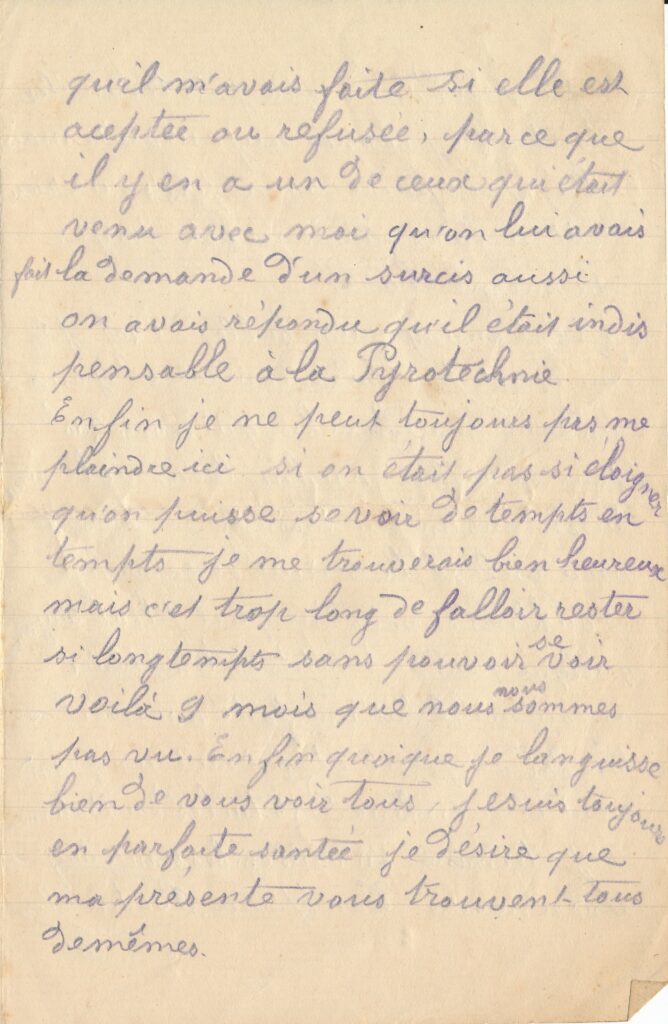 qu'il m'avais faite si elle est
aceptée ou refusée, parce que
il y en a un de ceux qui était
venu avec moi qu'on lui avais
fait la demande d'un surcis aussi
on avais répondu qu'il était indis
pensable à la Pyrotechnie
Enfin je ne peut toujours pas me
plaindre ici si on était pas si éloigner
qu'on puisse se voir de tempts en
tempts je me trouverais bien heureux
mais c'est trop long de falloir rester
si longtempts sans pouvoir se voir
voilà 9 mois que nous nous sommes
pas vu. Enfin quoique je languisse
bien de vous voir tous, je suis toujours
en parfaite santée je désire que
ma présente vous trouvent tous
de mêmes.